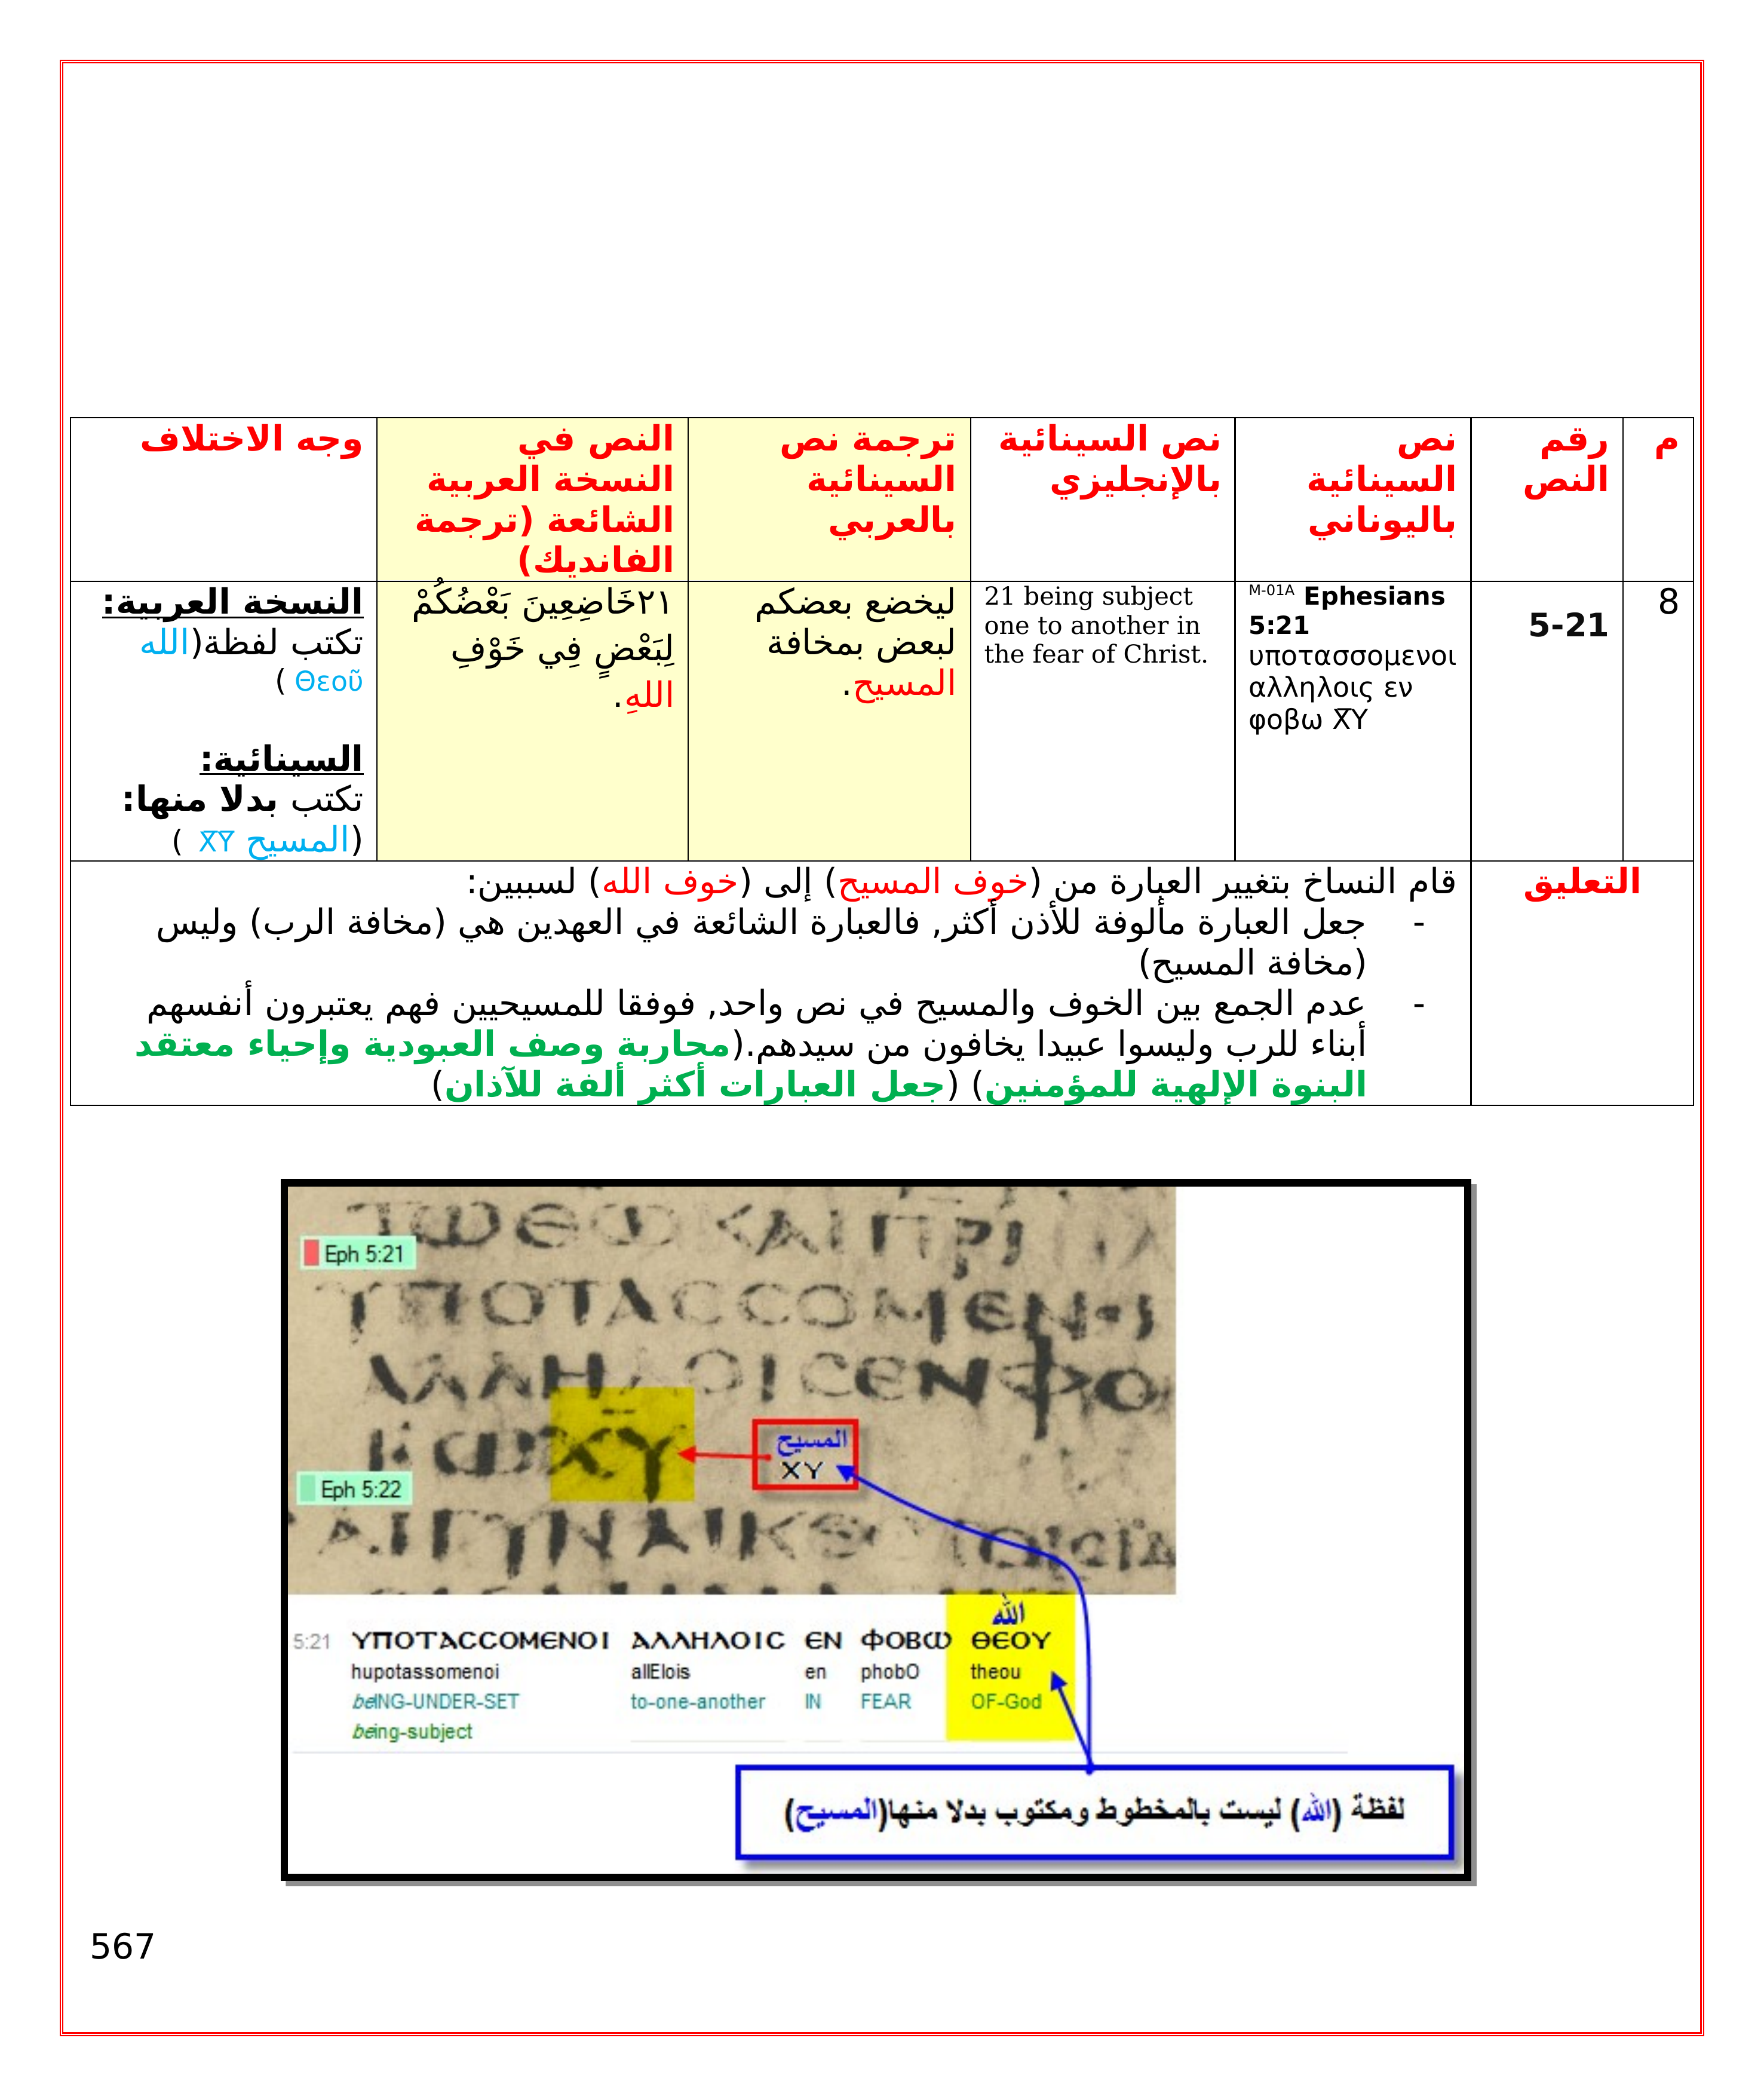 م
رقم
النص
نص
السينائية
باليوناني
نص السينائية
بالإنجليزي
ترجمة نص
السينائية
بالعربي
النص في
النسخة العربية
الشائعة (ترجمة
الفانديك)
وجه الاختلاف
8
5-21
M-01A Ephesians
5:21
υποτασσομενοι
αλληλοις εν
φοβω X̅Y̅
21 being subject
one to another in
the fear of Christ.
ليخضع بعضكم
لبعض بمخافة
المسيح.
٢١خَاضِعِينَ بَعْضُكُمْ
لِبَعْضٍ فِي خَوْفِ
اللهِ.
النسخة العربية:
تكتب لفظة(الله
Θεοῦ )
السينائية:
تكتب بدلا منها:
(المسيح X̅Y̅ )
التعليق
قام النساخ بتغيير العبارة من (خوف المسيح) إلى (خوف الله) لسببين:
- جعل العبارة مألوفة للأذن أكثر, فالعبارة الشائعة في العهدين هي (مخافة الرب) وليس
(مخافة المسيح)
- عدم الجمع بين الخوف والمسيح في نص واحد, فوفقا للمسيحيين فهم يعتبرون أنفسهم
أبناء للرب وليسوا عبيدا يخافون من سيدهم.(محاربة وصف العبودية وإحياء معتقد
البنوة الإلهية للمؤمنين) (جعل العبارات أكثر ألفة للآذان)
Eph 5:21
ΥΠΟΤΑϹϹΟΜΕΝ
ΑΛΛΗΛΟΙϹΕΝΦΟ
ΒΩΧΥ
المسيح
XY
Eph 5:22
ΑΙΓΥΝΑΙΚΕϹ
الله
5:21 ΥΠΟΤΑϹϹΟΜΕΝΟΙ ΑΛΛΗΛΟΙϹ ΕΝ ΦΟΒΩ ΘΕΟΥ
hupotassomenoi allElois en phobO theou
beING-UNDER-SET to-one-another IN FEAR OF-God
being-subject
لفظة (الله) ليست بالمخطوط ومكتوب بدلا منها(المسيح)
567